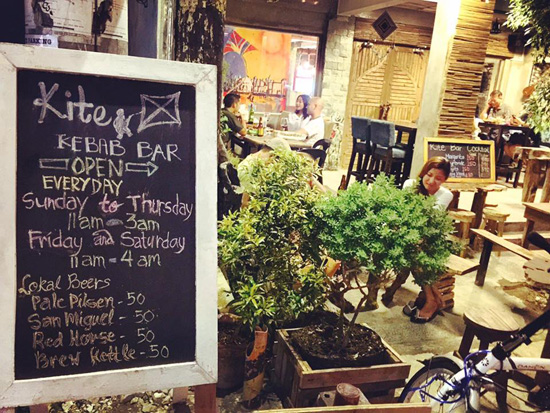 Kite
KEBAB BAR
OPEN
EVERYDAY
Sunday to Thursday
11am - 3am
Friday and Saturday
11am - 4am
Lokal Beers
Pale Pilsen - 50
San Miguel - 50
Red Horse - 50
Brew Kettle - 50
Kite Bar Cocktail